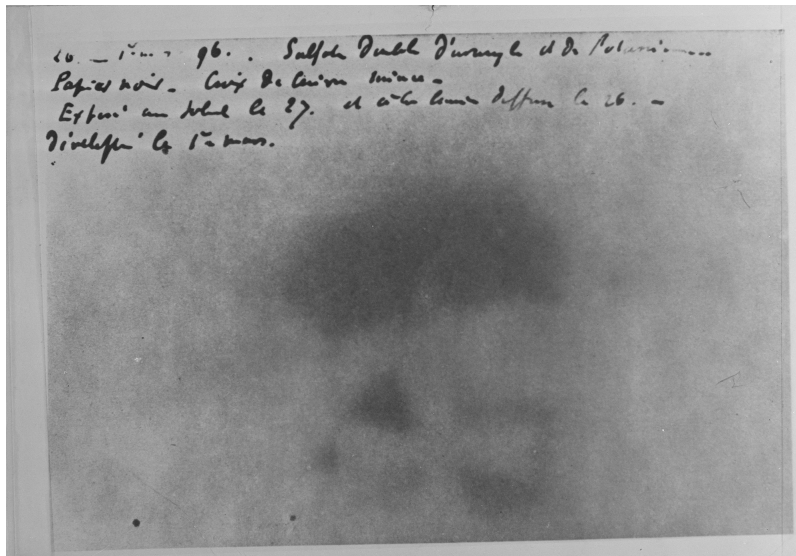 96. . Sulfate Double d'uranyle et de Potassium
Papier noir. Croix de Cuivre mince -
Exposé au soleil le 27. et à la lumière diffuse le 26. -
Développé le 1er mars.